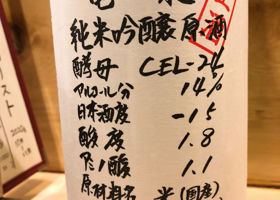 純米吟醸原酒
酵母 CEL-24
アルコール分 14%
日本酒度 -15
酸度 1.8
アミノ酸 1.1
原材料名 米(国産)
リスト